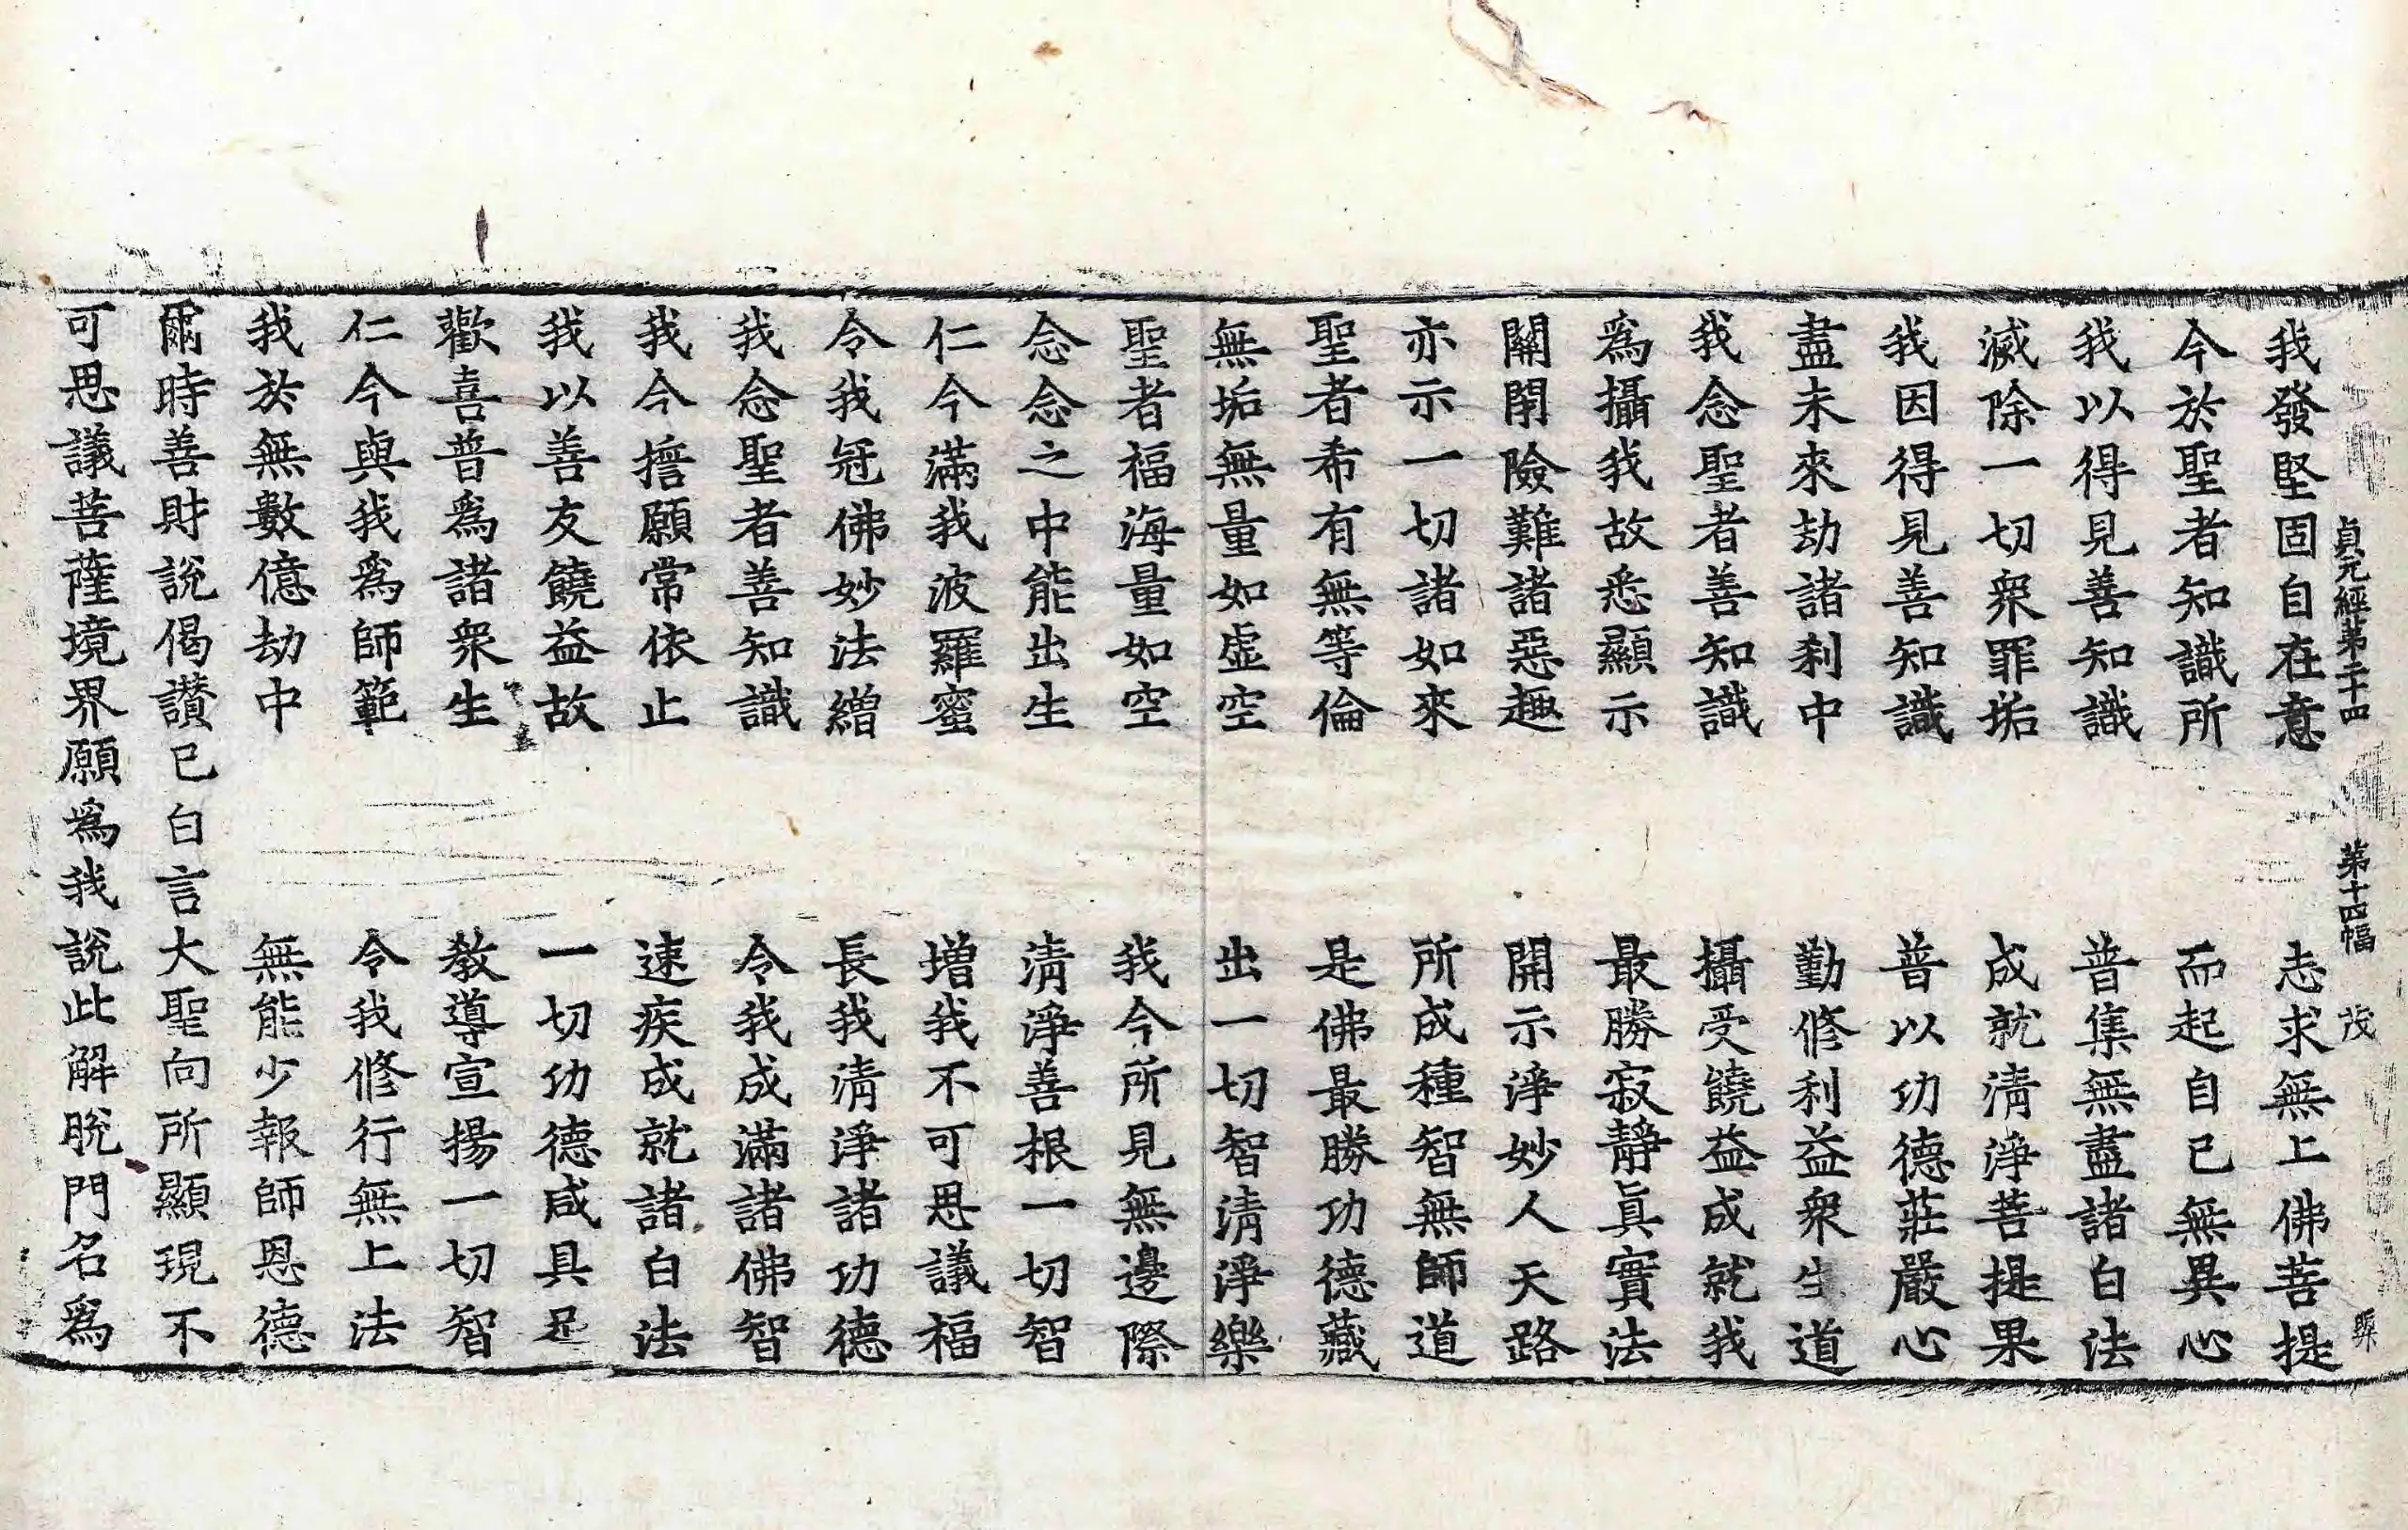 貞元經第二十四 第十四幅 茂
我發堅固自在意 志求無上佛菩提
今於聖者知識所 而起自己無異心
我以得見善知識 普集無盡諸白法
滅除一切衆罪垢 成就淸淨菩提果
我因得見善知識 普以功德莊嚴心
盡未來劫諸刹中 勤修利益衆生道
我念聖者善知識 攝受饒益成就我
爲攝我故悉顯示 最勝寂靜眞實法
關閉險難諸惡趣 開示淨妙人天路
亦示一切諸如來 所成種智無師道
聖者希有無等倫 是佛最勝功德藏
無垢無量如虛空 出一切智淸淨樂
聖者福海量如空 我今所見無邊際
念念之中能出生 淸淨善根一切智
仁今滿我波羅蜜 增我不可思議福
令我冠佛妙法繒 長我淸淨諸功德
我念聖者善知識 令我成滿諸佛智
我今擔願常依止 速疾成就諸白法
我以善友饒益故 一切功德咸具足
歡喜普爲諸衆生 教導宣揚一切智
仁今與我爲師範 令我修行無上法
我於無數億劫中 無能少報師恩德
爾時善財說偈讃已白言大聖向所顯現不
可思議菩薩境界願爲我說此解脫門名爲